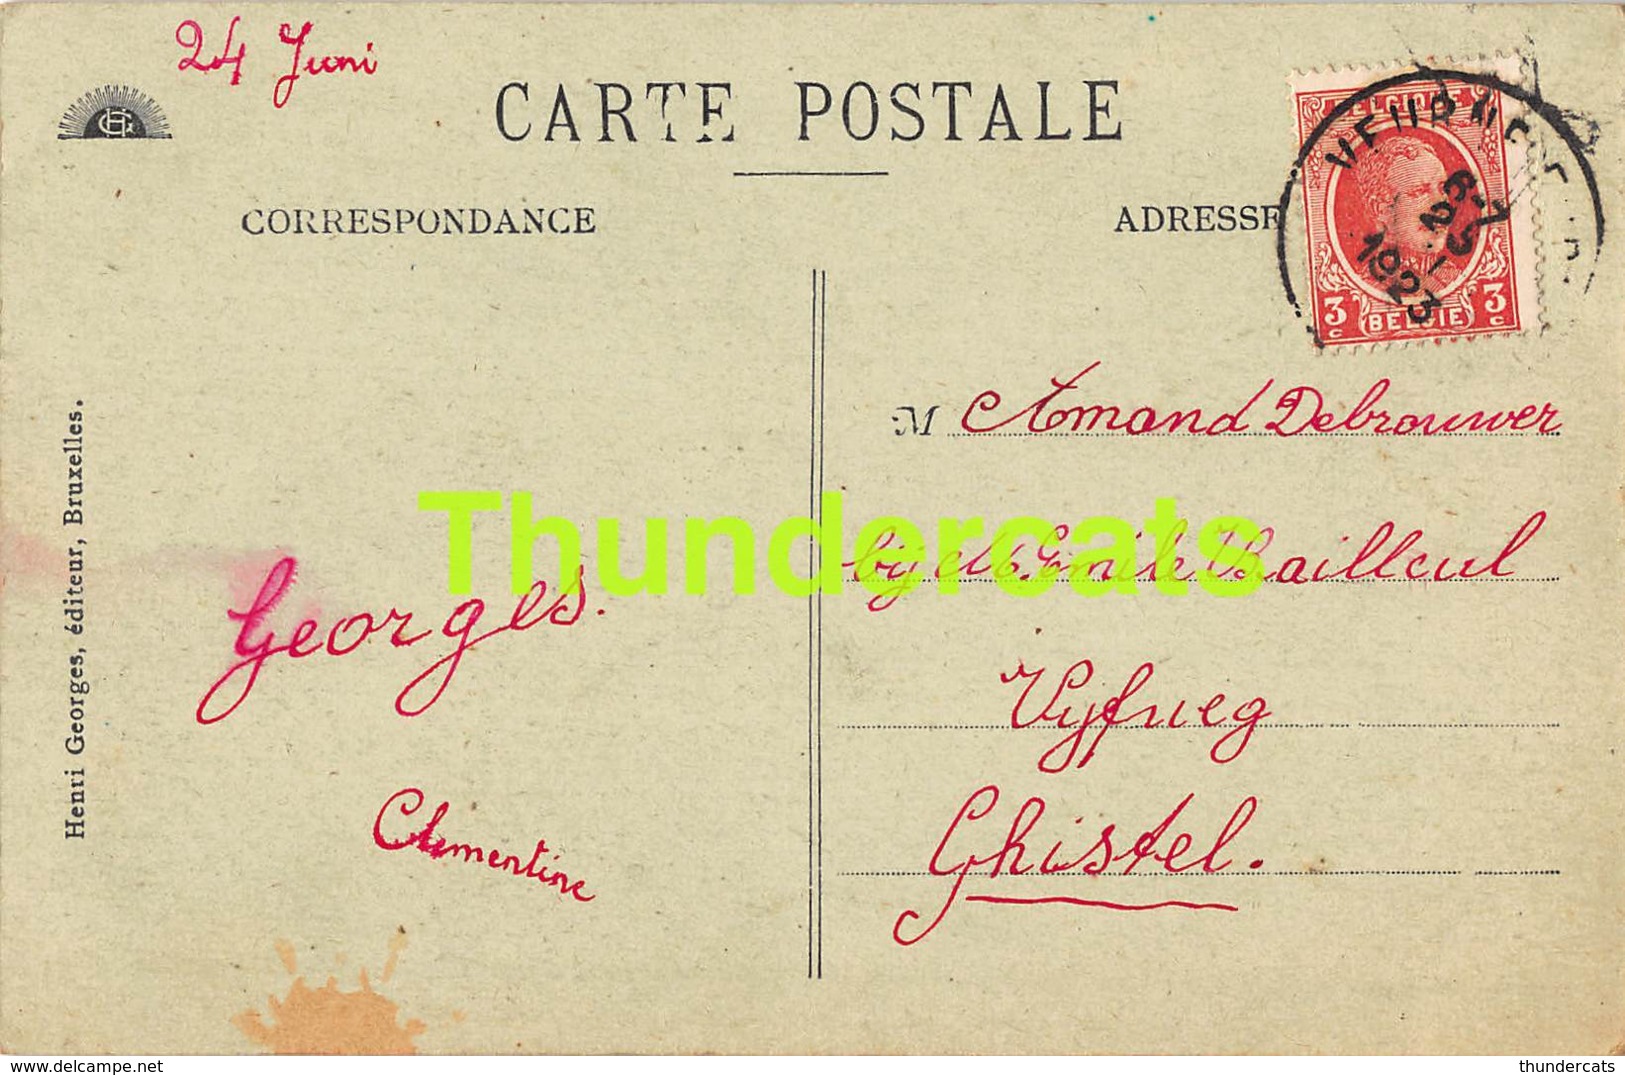 24 Juni
CARTE POSTALE
CORRESPONDANCE
ADRESSE
BELGIQUE
3 c BELGIE 3 c
1923
M Armand Debrouwer
bij M. Emile Bailleul
Vyfweg
Ghistel.
Georges.
Clementine
Henri Georges, éditeur, Bruxelles.
Thundercats
delcampe.net
thundercats